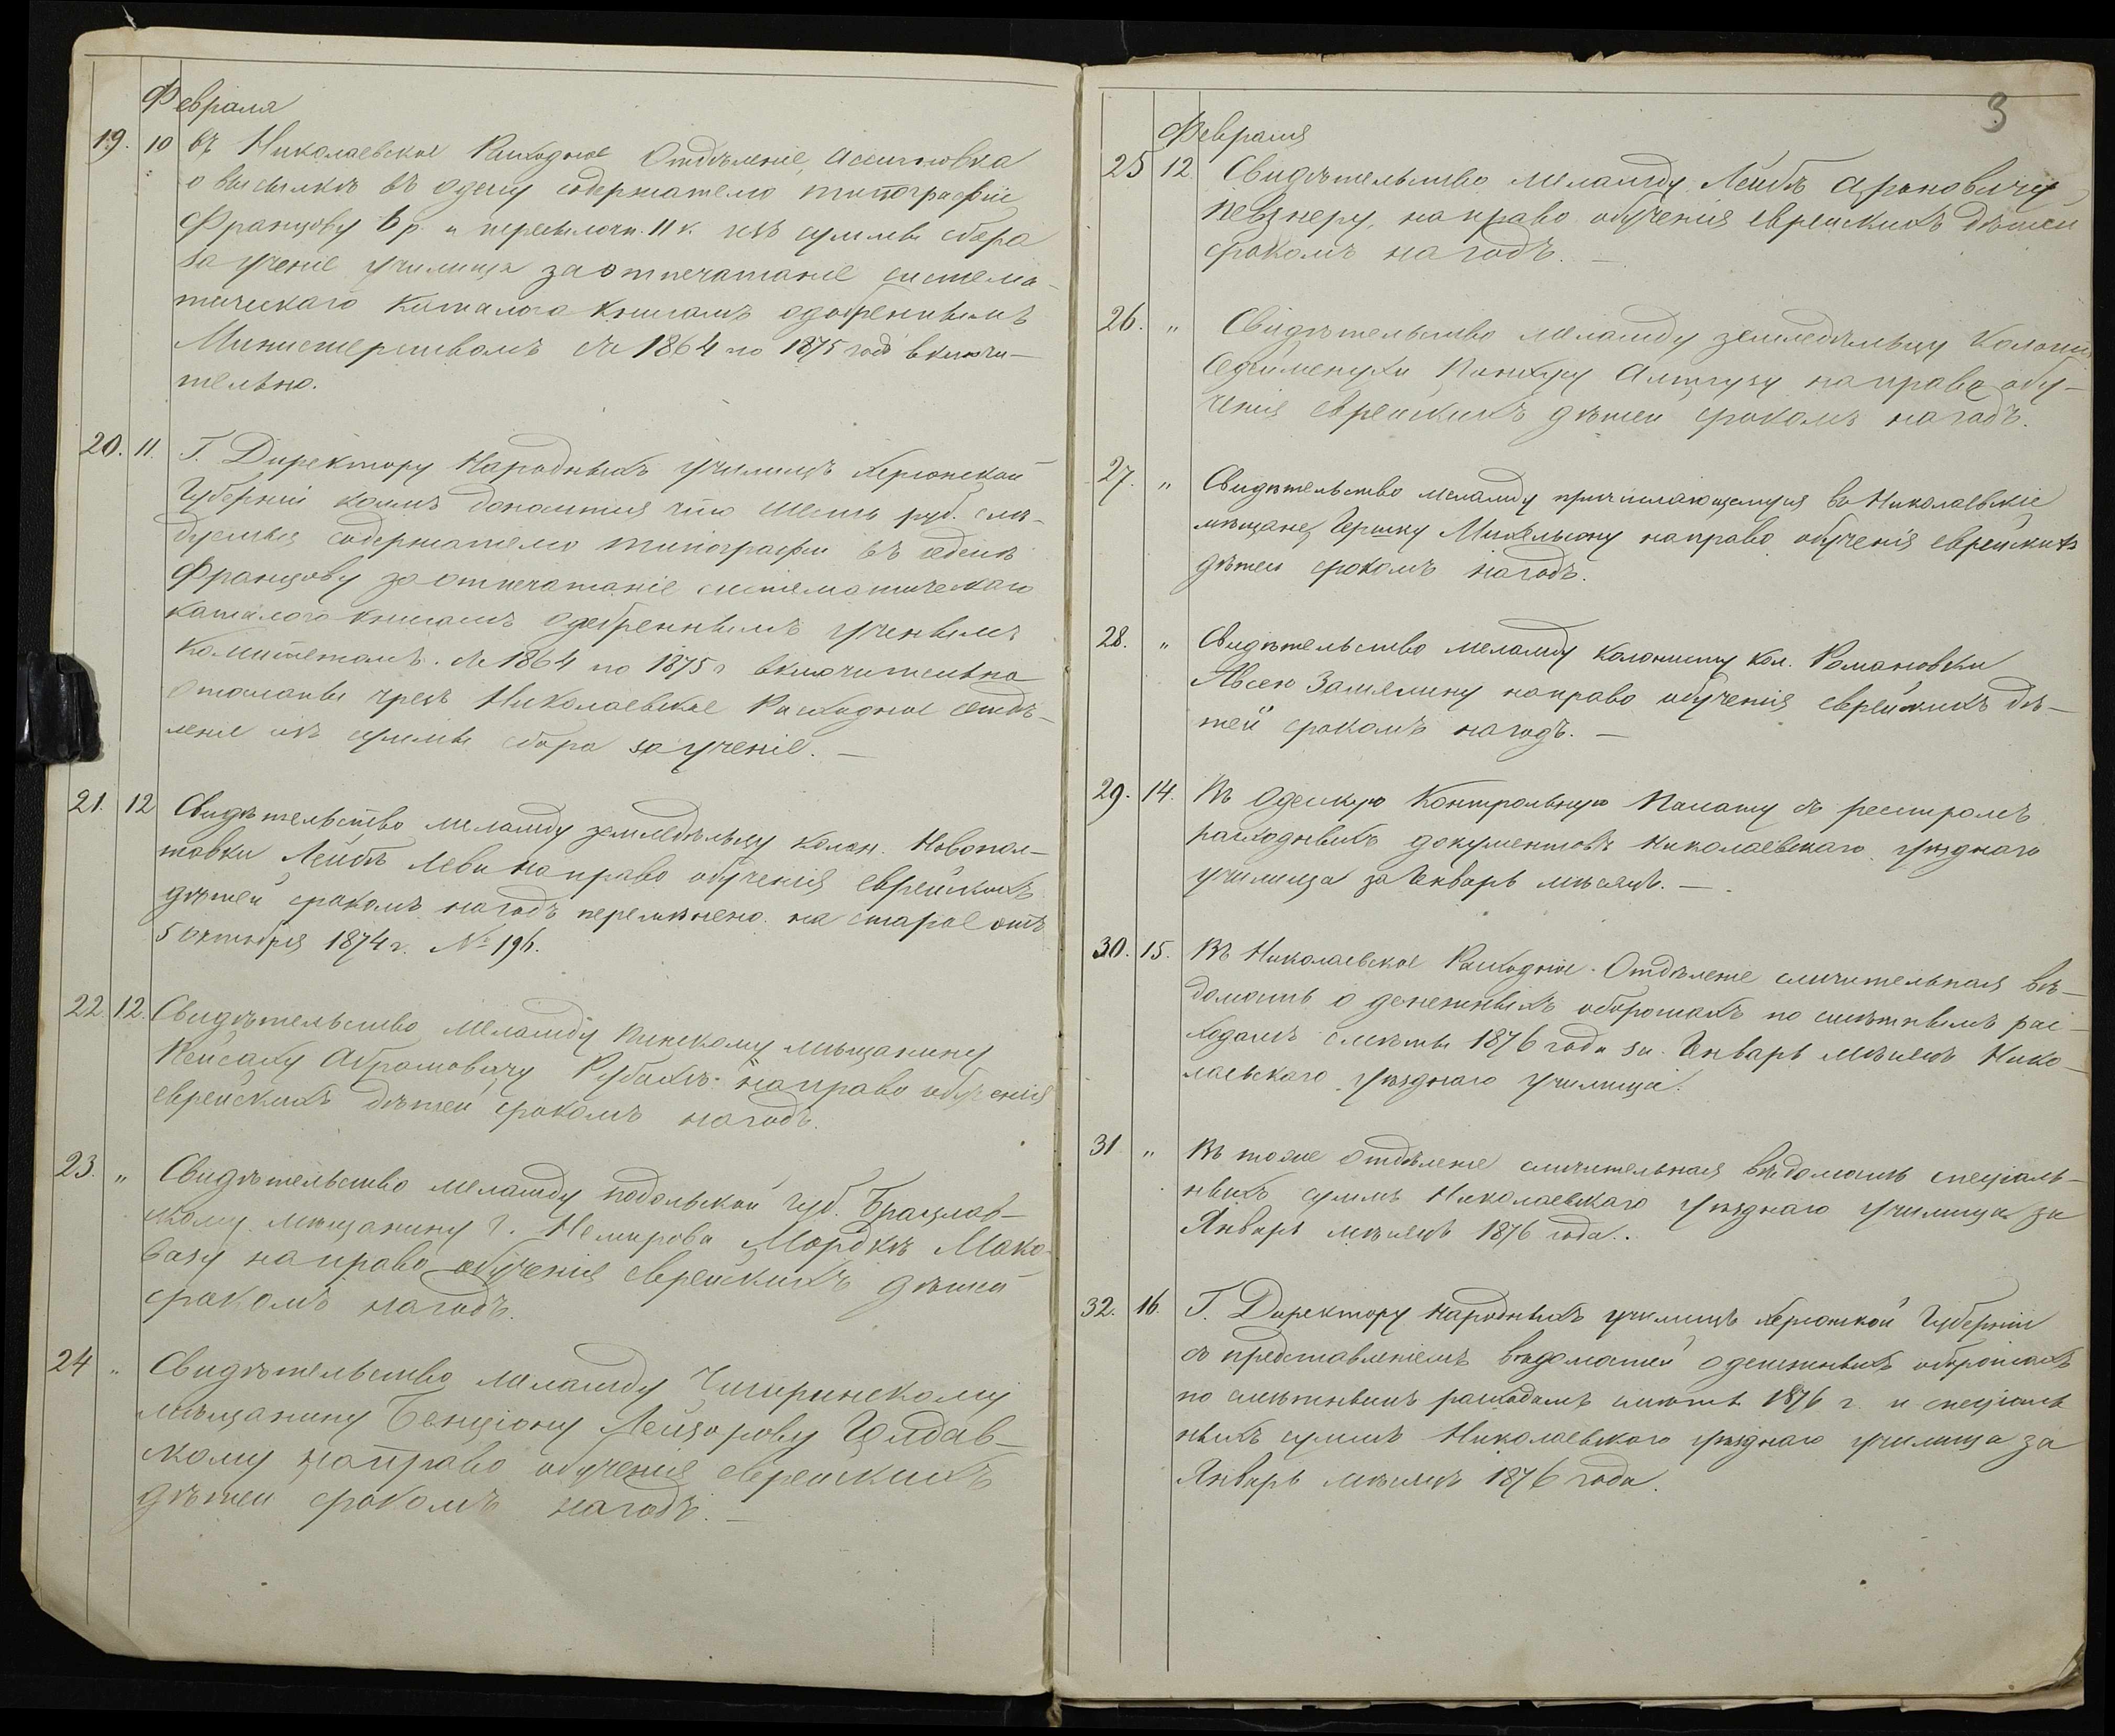 Февраля
19. 10 въ Николаевское Расходное Отдѣленіе, Ассигновка
о высылкѣ въ одессу содержателю типографіи
Францову 6 р. и пересылочн. 11 к. изъ суммы сбора
за ученіе училища за отпечатаніе система-
тическаго каталога книгамъ одобреннымъ
Министерствомъ съ 1864 по 1875 годъ включи-
тельно.
20. 11. Г. Директору Народныхъ училищъ Херсонской
Губерніи коимъ доносится что шесть руб. слѣ-
дуемыя содержателю типографіи въ одессѣ
Францову за отпечатаніе систематическаго
каталога книгамъ одобреннымъ ученымъ
Комитетомъ. съ 1864 по 1875 г включительно
отосланы чрезъ Николаевское Расходное отдѣ-
леніе изъ суммы сбора за ученіе. —
21. 12 Свидѣтельство меламду земледѣльцу колон. Новопол-
товки Лейбѣ Леви на право обученія еврейскихъ
дѣтей срокомъ на годъ перемѣнено на старое отъ
5 октября 1874 г. № 196.
22. 12. Свидѣтельство меламду Пинскому мѣщанину
Пейсаху Абрамовичу на право обученія
еврейскихъ дѣтей срокомъ на годъ.
23. „ Свидѣтельство меламду подольской губ. Брацлав-
скому мѣщанину г. Немирова Мордкѣ Мако-
возу на право обученія еврейскихъ дѣтей
срокомъ на годъ.
24 „ Свидѣтельство меламду Чигиринскому
мѣщанину Бенціону Лейзорову
скому на право обученія еврейскихъ
дѣтей срокомъ на годъ. —
3
Февраля
25 12. Свидѣтельство меламду Лейбѣ Ароновичу
Певзнеру, на право обученія еврейскихъ дѣтей
срокомъ на годъ. —
26. „ Свидѣтельство меламду земледѣльцу Колоніи
Седейменухи Пинхусу на право обу-
ченія еврейскихъ дѣтей срокомъ на годъ.
27. „ Свидѣтельство меламду причисляющемуся въ Николаевскіе
мѣщане Гершку Михельсону на право обученія еврейскихъ
дѣтей срокомъ на годъ.
28. „ Свидѣтельство меламду колонисту кол. Романовки
на право обученія еврейскихъ дѣ-
тей срокомъ на годъ. —
29. 14. Въ Одесскую Контрольную Палату съ реестромъ
расходныхъ документовъ Николаевскаго уѣзднаго
училища за Январь мѣсяцъ. —
30. 15. Въ Николаевское Расходное Отдѣленіе сличительная вѣ-
домость о денежныхъ оборотахъ по смѣтнымъ рас-
ходамъ смѣты 1876 года за Январь мѣсяцъ Нико-
лаевскаго уѣзднаго училища.
31 „ Въ тоже Отдѣленіе сличительная вѣдомость спеціаль-
ныхъ суммъ Николаевскаго уѣзднаго училища за
Январь мѣсяцъ 1876 года.
32. 16. Г. Директору Народныхъ училищъ Херсонской Губерніи
съ представленіемъ вѣдомостей о денежныхъ оборотахъ
по смѣтнымъ расходамъ смѣты 1876 г. и спеціаль
ныхъ суммъ Николаевского уѣзднаго училища за
Январь мѣсяцъ 1876 года.